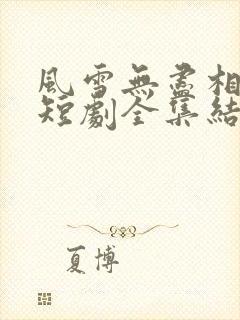 風雪無盡相
短劇全集結
夏博